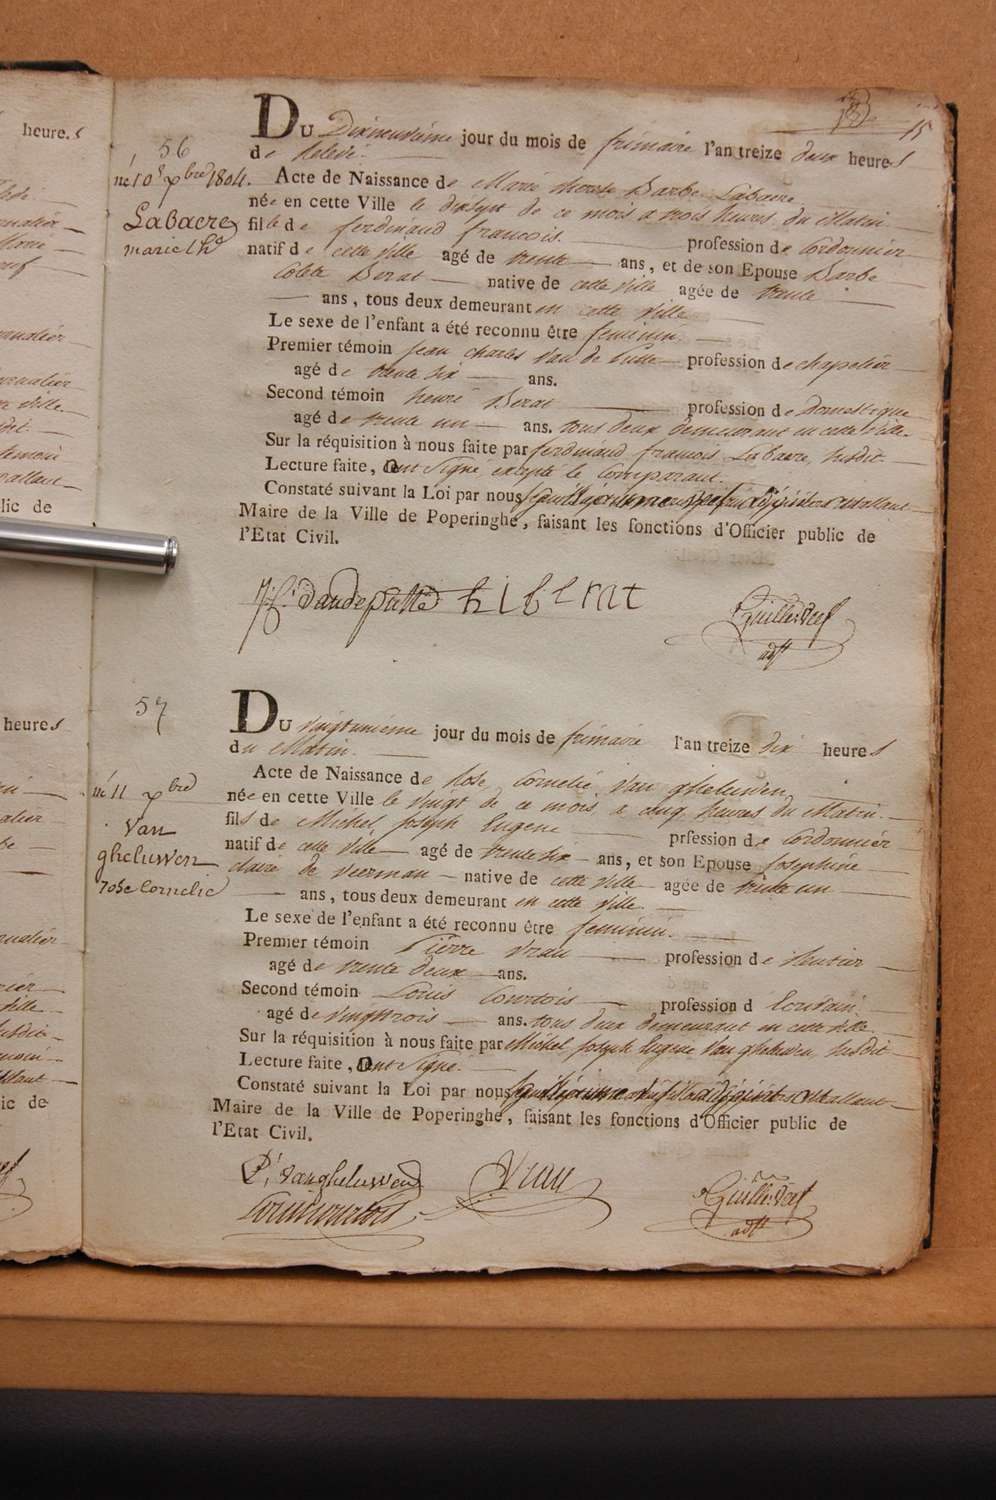 15
56
né 10e xbre 1804.
Labaere
marie th.
Du Dixneuvieme jour du mois de frimaire l'an treize deux heures
de Relevé.
Acte de Naissance de Marie Therese Barbe Labaere
née en cette Ville le dixsept de ce mois a trois heures du Matin
fille de ferdinand francois profession de Cordonnier
natif de cette ville agé de trente ans, et de son Epouse Barbe
Colete Berat native de cette ville agée de trente
ans, tous deux demeurant en cette ville
Le sexe de l'enfant a été reconnu être feminin.
Premier témoin Jean Charles Van de Putte profession de chapelier
agé de trente six ans.
Second témoin henri Berat profession de Domestique
agé de trente un ans. tous deux demeurant en cette ville.
Sur la réquisition à nous faite par ferdinand francois Labaere susdit.
Lecture faite, ont signé excepté le Comparant.
Constaté suivant la Loi par nous
Maire de la Ville de Poperinghe, faisant les fonctions d'Officier public de
l'Etat Civil.
vandeputte h: berat
adjt
57
né 11 xbre
Van
gheluwen
rose Cornelie
Du vingtunieme jour du mois de frimaire l'an treize dix heures
du Matin.
Acte de Naissance de Rose Cornelie Van gheluwen
née en cette Ville le vingt de ce mois a cinq heures du Matin.
fils de Michel Joseph Eugene prfession de Cordonnier
natif de cette ville agé de trente six ans, et son Epouse Josephine
claire de veerman native de cette ville agée de trente un
ans, tous deux demeurant en cette ville.
Le sexe de l'enfant a été reconnu être feminin.
Premier témoin Pierre Vrau profession de Rentier
agé de trente deux ans.
Second témoin Louis Courtois profession d Ecrivain
agé de vingttrois ans. tous deux demeurant en cette ville
Sur la réquisition à nous faite par Michel Joseph Eugene Van gheluwen susdit
Lecture faite, ont signé.
Constaté suivant la Loi par nous
Maire de la Ville de Poperinghe, faisant les fonctions d'Officier public de
l'Etat Civil.
vangheluwen Vrau
Louis Courtois
adjt
heures
lic de
heures
ic de